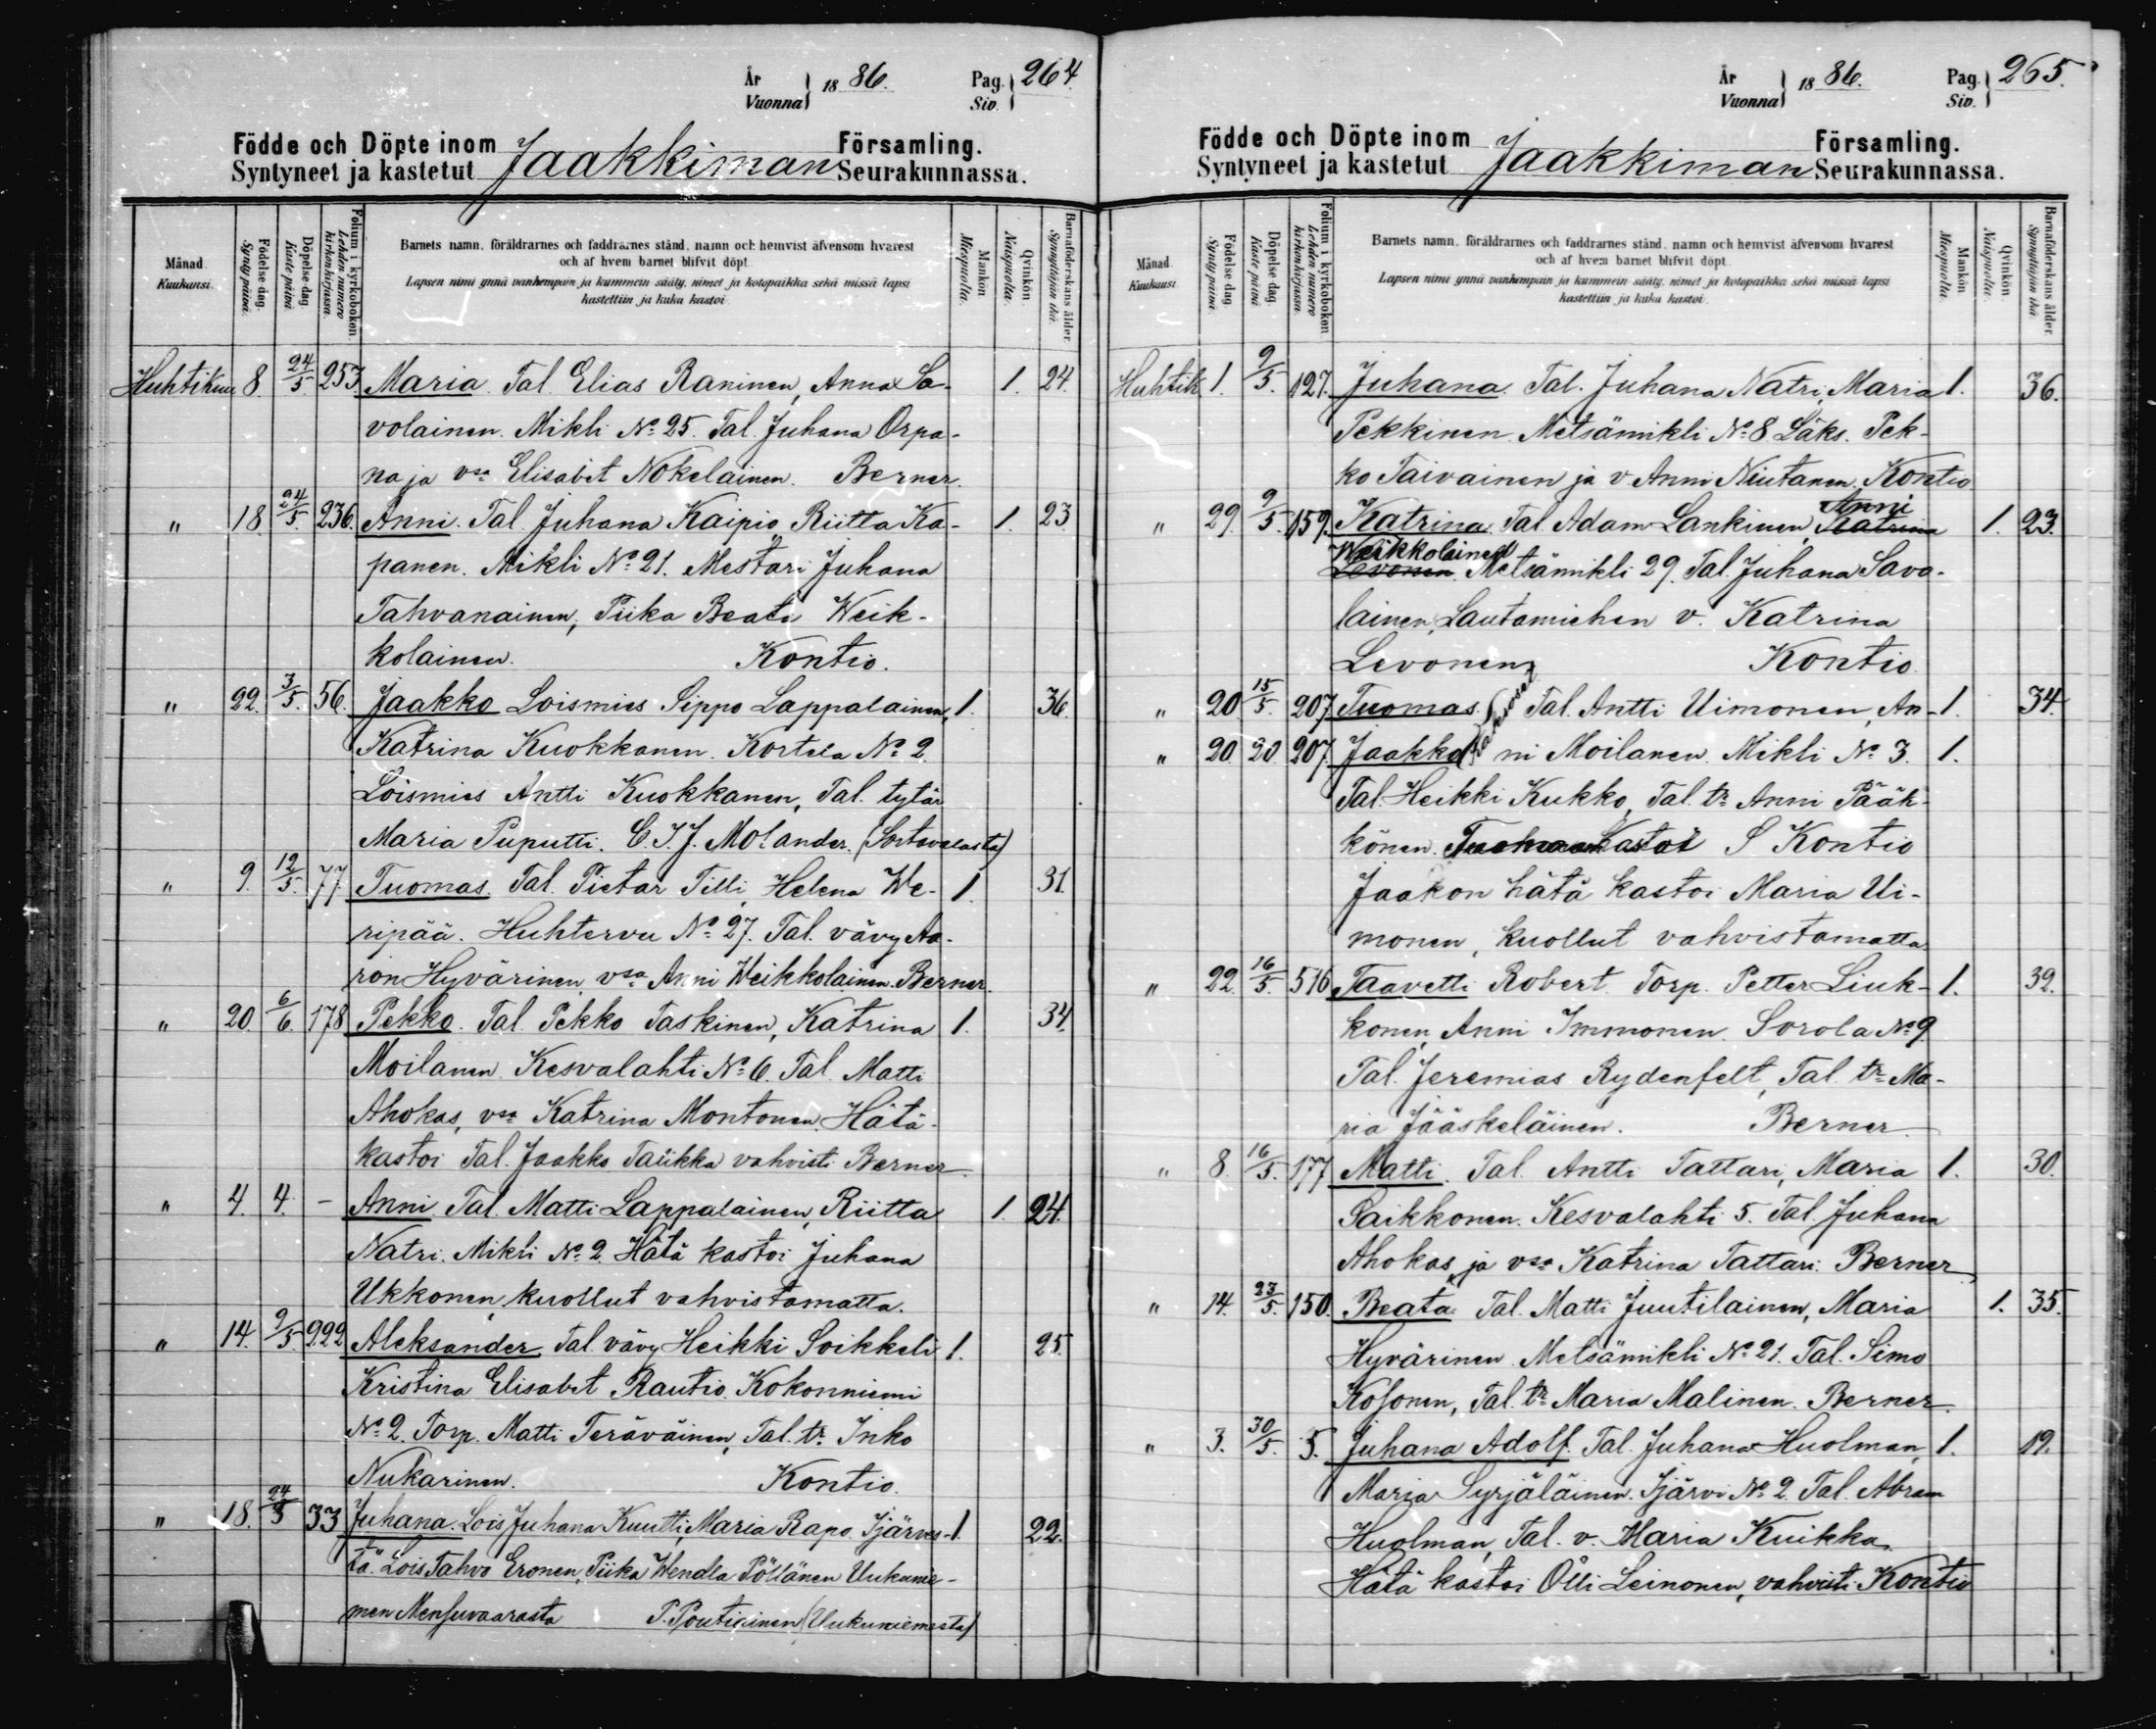 År
Vuonna } 1886. Pag. Siv. } 264.
Födde och Döpte inom Jaakkiman Församling.
Syntyneet ja kastetut Seurakunnassa.
Månad. Kuukausi.
Födelse dag. Synty päivä.
Döpelse dag. Kaste päivä
Folium i kyrkoboken. Lehden numero kirkonkirjassa.
Barnets namn, föräldrarnes och faddrarnes stånd, namn och hemvist äfvensom hvarest
och af hvem barnet blifvit döpt.
Lapsen nimi ynnä vanhempain ja kummein sääty, nimet ja kotopaikka sekä missä lapsi
kastettiin ja kuka kastoi.
Mankön Miespuolia.
Qvinkön Naispuolia.
Barnaföderskans ålder Synnyttäjän ikä.
Huhtikuu 8. 24/5. 253. Maria. Tal. Elias Raninen, Anna Sa- 1. 24.
volainen. Mikli No 25. Tal. Juhana Orpa-
na ja vsa Elisabet Nokelainen. Berner.
" 18. 24/5. 236. Anni. Tal. Juhana Kaipio, Riitta Ka- 1. 23.
panen. Mikli No 21. Mestari Juhana
Tahvanainen, Piika Beata Weik-
kolainen. Kontio.
" 22. 3/5. 56. Jaakko Loismies Sippo Lappalainen, 1. 36.
Katrina Kuokkanen. Kortela No 2.
Loismies Antti Kuokkanen, Tal. tytär
Maria Puputti. C. I. J. Molander. (Sortavalasta)
" 9. 12/5. 77. Tuomas. Tal. Pietar Tilli, Helena We- 1. 31.
ripää. Huhtervu No 27. Tal. vävy Aa-
ron Hyvärinen, vsa Anni Weikkolainen. Berner.
" 20. 6/6. 178 Pekko. Tal. Pekko Taskinen, Katrina 1. 34.
Moilanen. Kesvalahti No 6. Tal. Matti
Ahokas, vsa Katrina Montonen. Hätä-
kastoi Tal. Jaakko Taukka vahvisti Berner.
" 4. 4. - Anni. Tal. Matti Lappalainen, Riitta 1. 24.
Natri. Mikli No 2. Hätä kastoi Juhana
Ukkonen, kuollut vahvistamatta.
" 14. 9/5. 222 Aleksander Tal. vävy Heikki Soikkeli 1. 25.
Kristina Elisabet Rautio. Kokonniemi
No 2. Torp. Matti Teräväinen, Tal. tr. Inko
Nukarinen. Kontio.
" 18. 24/5 33 Juhana. Lois Juhana Kuutti, Maria Rapo. Ijärves- 1. 22.
tä. Lois Tahvo Eronen, Piika Wendla Pöllänen Uukunie-
men Mensuvaarasta P. Poutiainen (Uukuniemestä)
År
Vuonna } 1886. Pag. Siv. } 265.
Födde och Döpte inom Jaakkiman Församling.
Syntyneet ja kastetut Seurakunnassa.
Månad. Kuukausi
Födelse dag. Synty päivä.
Döpelse dag. Kaste päivä
Folium i kyrkoboken Lehden numero kirkonkirjassa.
Barnets namn, föräldrarnes och faddrarnes stånd, namn och hemvist äfvensom hvarest
och af hvem barnet blifvit döpt.
Lapsen nimi ynnä vanhempain ja kummein sääty, nimet ja kotopaikka sekä missä lapsi
kastettiin ja kuka kastoi.
Mankön Miespuolia.
Qvinkön Naispuolia.
Barnaföderskans ålder Synnyttäjän ikä.
Huhtik. 1. 9/5. 127. Juhana. Tal. Juhana Natri, Maria 1. 36.
Pekkinen. Metsämikli No 8 Läks. Pek-
ko Taivainen ja v. Anni Niutanen. Kontio
" 29. 9/5. 159. Katrina. Tal. Adam Lankinen, Katrina Anni 1. 23.
Weikkolainen
Levonen Metsämikli 29. Tal. Juhana Savo-
lainen, Lautamiehen v. Katrina
Levonen Kontio.
" 20 15/5. 207 Tuomas. Kaksoset Tal. Antti Uimonen, An- 1. 34.
" 20. 20. 207. Jaakko ni Moilanen. Mikli No 3. 1.
Tal. Heikki Kukko, Tal. tr Anni Pääk-
könen. Kastoi S Kontio
Jaakon hätä kastoi Maria Ui-
monen, kuollut vahvistamatta
" 22. 16/5. 516 Taavetti Robert. Torp. Petter Liuk- 1. 32.
konen, Anni Immonen. Sorola No 9
Tal. Jeremias Rydenfelt, Tal. tr Ma-
ria Jääskeläinen. Berner
" 8. 16/5. 177 Matti. Tal. Antti Tattari, Maria 1. 30.
Paikkonen. Kesvalahti 5. Tal. Juhana
Ahokas ja vsa Katrina Tattari. Berner
" 14. 23/5. 150. Beata Tal. Matti Juutilainen, Maria 1. 35.
Hyvärinen. Metsämikli No 21. Tal. Simo
Kosonen, Tal. tr Maria Malinen. Berner.
" 3. 30/5. 5. Juhana Adolf. Tal. Juhana Huolman, 1. 19.
Maria Syrjäläinen. Ijärvi No 2. Tal. Abram
Huolman, Tal. v. Maria Kuikka.
Hätä kastoi Olli Leinonen, vahvisti Kontio